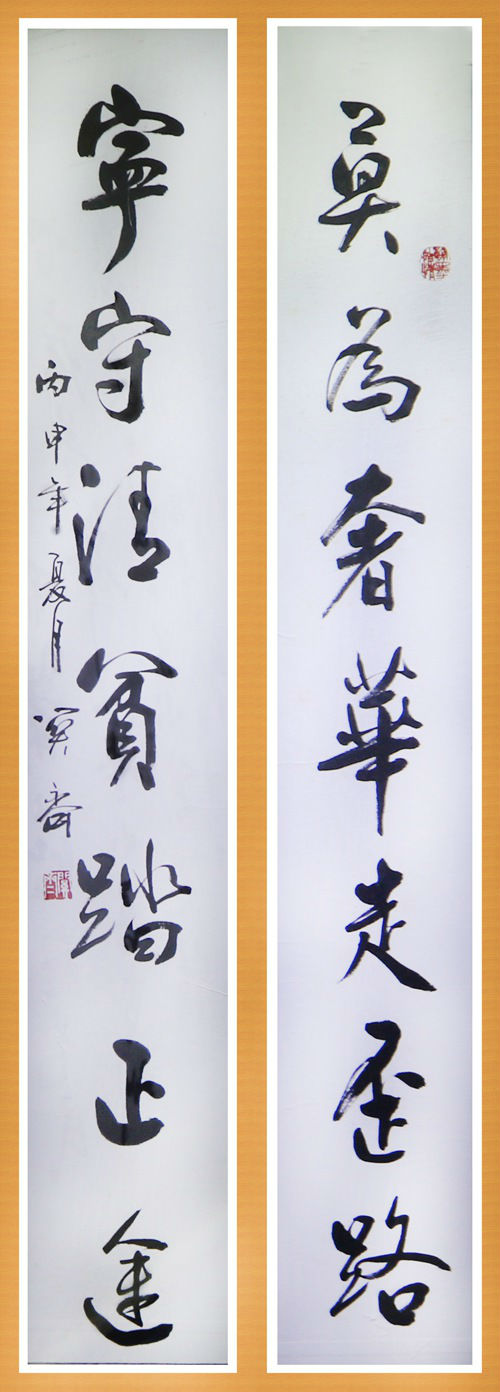 莫為奢華走歪路
寧守清貧踏正途
丙申年夏月